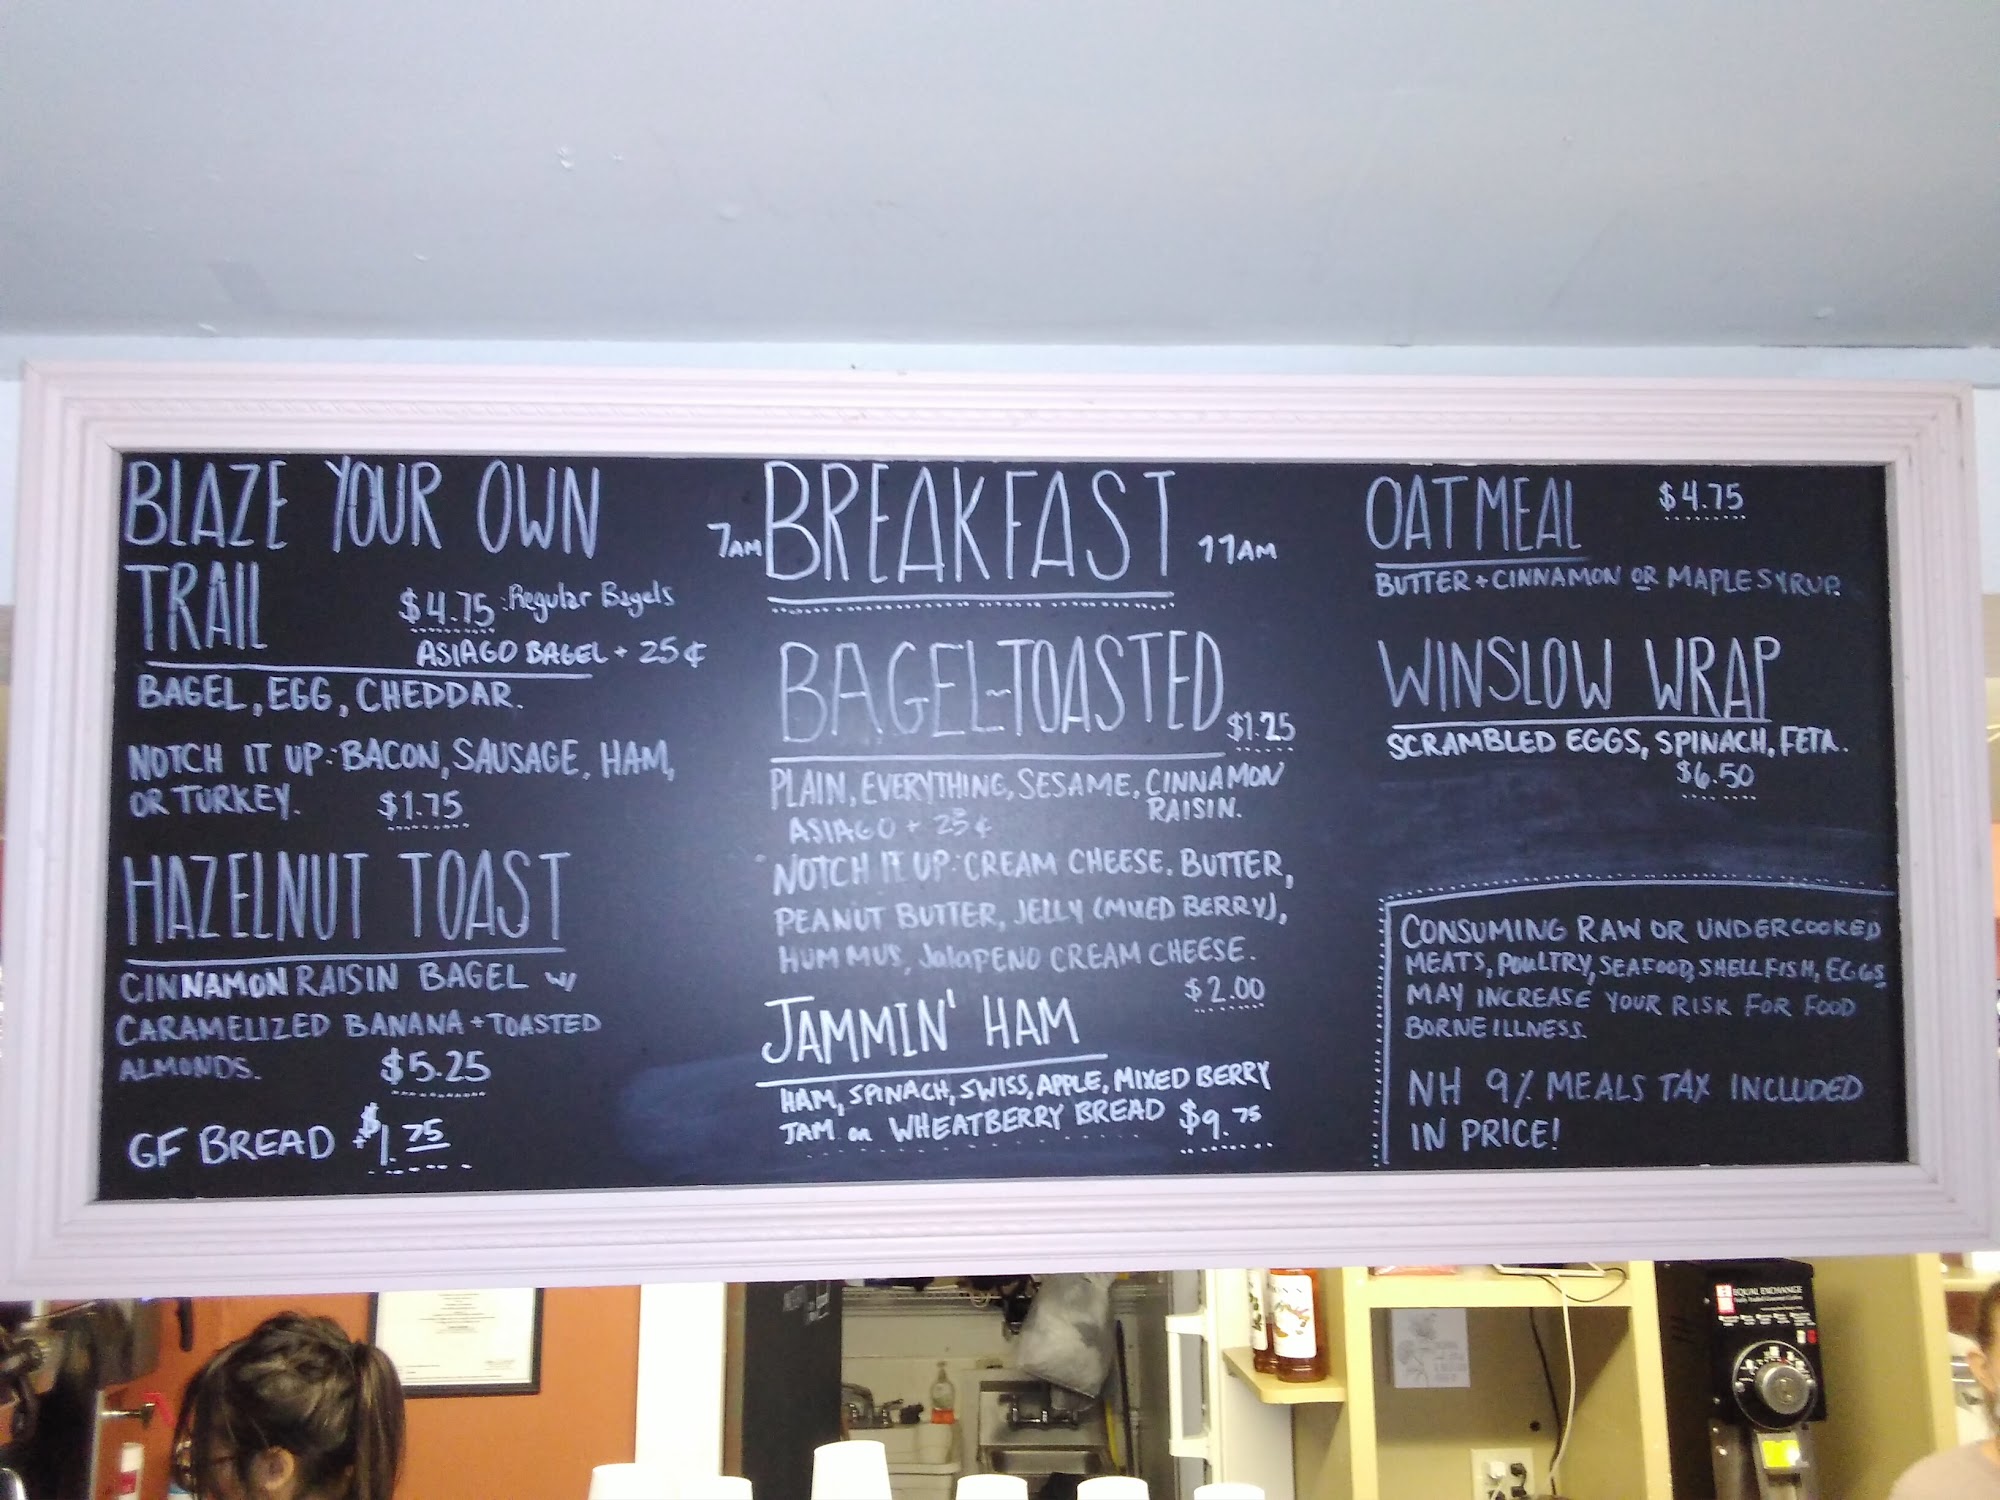 BLAZE YOUR OWN
TRAIL
$4.75 : Regular Bagels
ASIAGO BAGEL + 25¢
BAGEL, EGG, CHEDDAR.
NOTCH IT UP: BACON, SAUSAGE, HAM,
OR TURKEY. $1.75
HAZELNUT TOAST
CINNAMON RAISIN BAGEL W/
CARAMELIZED BANANA + TOASTED
ALMONDS. $5.25
GF BREAD +$1.75
7AM BREAKFAST 11AM
BAGEL~TOASTED $1.25
PLAIN, EVERYTHING, SESAME, CINNAMON
RAISIN.
ASIAGO + 25¢
NOTCH IT UP: CREAM CHEESE. BUTTER,
PEANUT BUTTER, JELLY (MIXED BERRY),
HUMMUS, JalaPENO CREAM CHEESE.
$2.00
JAMMIN' HAM
HAM, SPINACH, SWISS, APPLE, MIXED BERRY
JAM on WHEATBERRY BREAD $9.75
OATMEAL $4.75
BUTTER + CINNAMON OR MAPLE SYRUP.
WINSLOW WRAP
SCRAMBLED EGGS, SPINACH, FETA.
$6.50
CONSUMING RAW OR UNDERCOOKED
MEATS, POULTRY, SEAFOOD, SHELLFISH, EGGS
MAY INCREASE YOUR RISK FOR FOOD
BORNE ILLNESS.
NH 9% MEALS TAX INCLUDED
IN PRICE!
EQUAL EXCHANGE